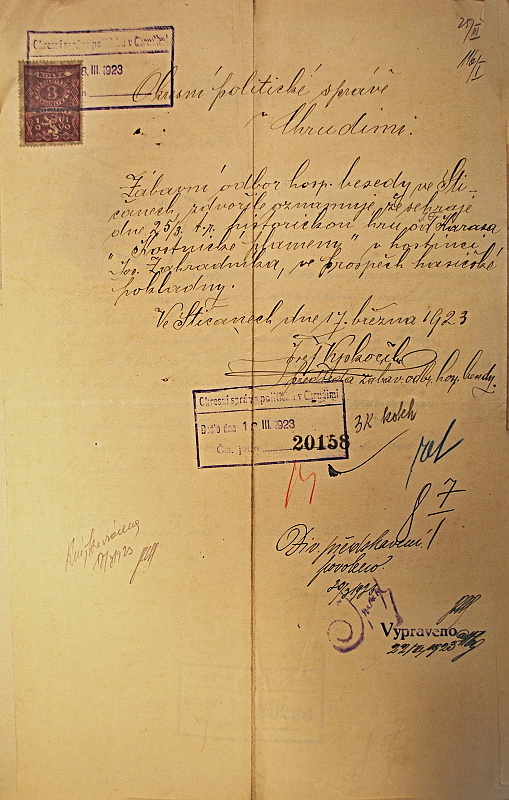 25/III
116/I
Okresní správa politická v Chrudimi
III. 1923
3
Okresní politické správě
v Chrudimi.
Zábavní odbor hosp. besedy ve Sti-
čanech, zdvořile oznamuje, že sehraje
dne 25/3. t.r. historickou hru od Karasa
"Kostnické plameny" v hostinci
Jos. Zahradníka, ve prospěch hasičské
pokladny.
Ve Stičanech dne 17. března 1923
Josef
předseda zábav. odb. hosp. besedy.
Okresní správa politická v Chrudimi
Došlo dne III. 1923
Čís. jedn. 20158
3K kolk
7
Div. představení
povoleno.
20/3 1923
Vypraveno
22/III, 1923